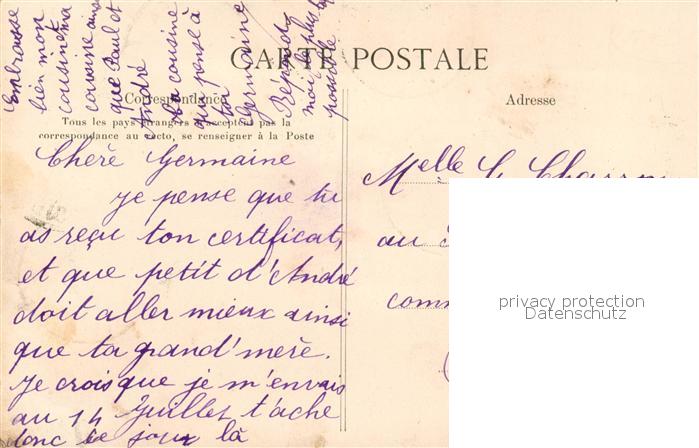 CARTE POSTALE
Correspondance
Adresse
Tous les pays étrangers n'acceptent pas la
correspondance au recto, se renseigner à la Poste
Chère Germaine
je pense que tu
as reçu ton certificat,
et que petit d'André
doit aller mieux ainsi
que ta grand'mère.
Je crois que je m'envais
au 14 Juillet t'ache
donc ce jour là
Embrasse
bien mon
cousin et ma
cousine ainsi
que Paul et
André
Ta cousine
qui pense à
toi
Germaine
Réponds
moi le plus tôt
possible
Melle G.
au
comm
privacy protection
Datenschutz